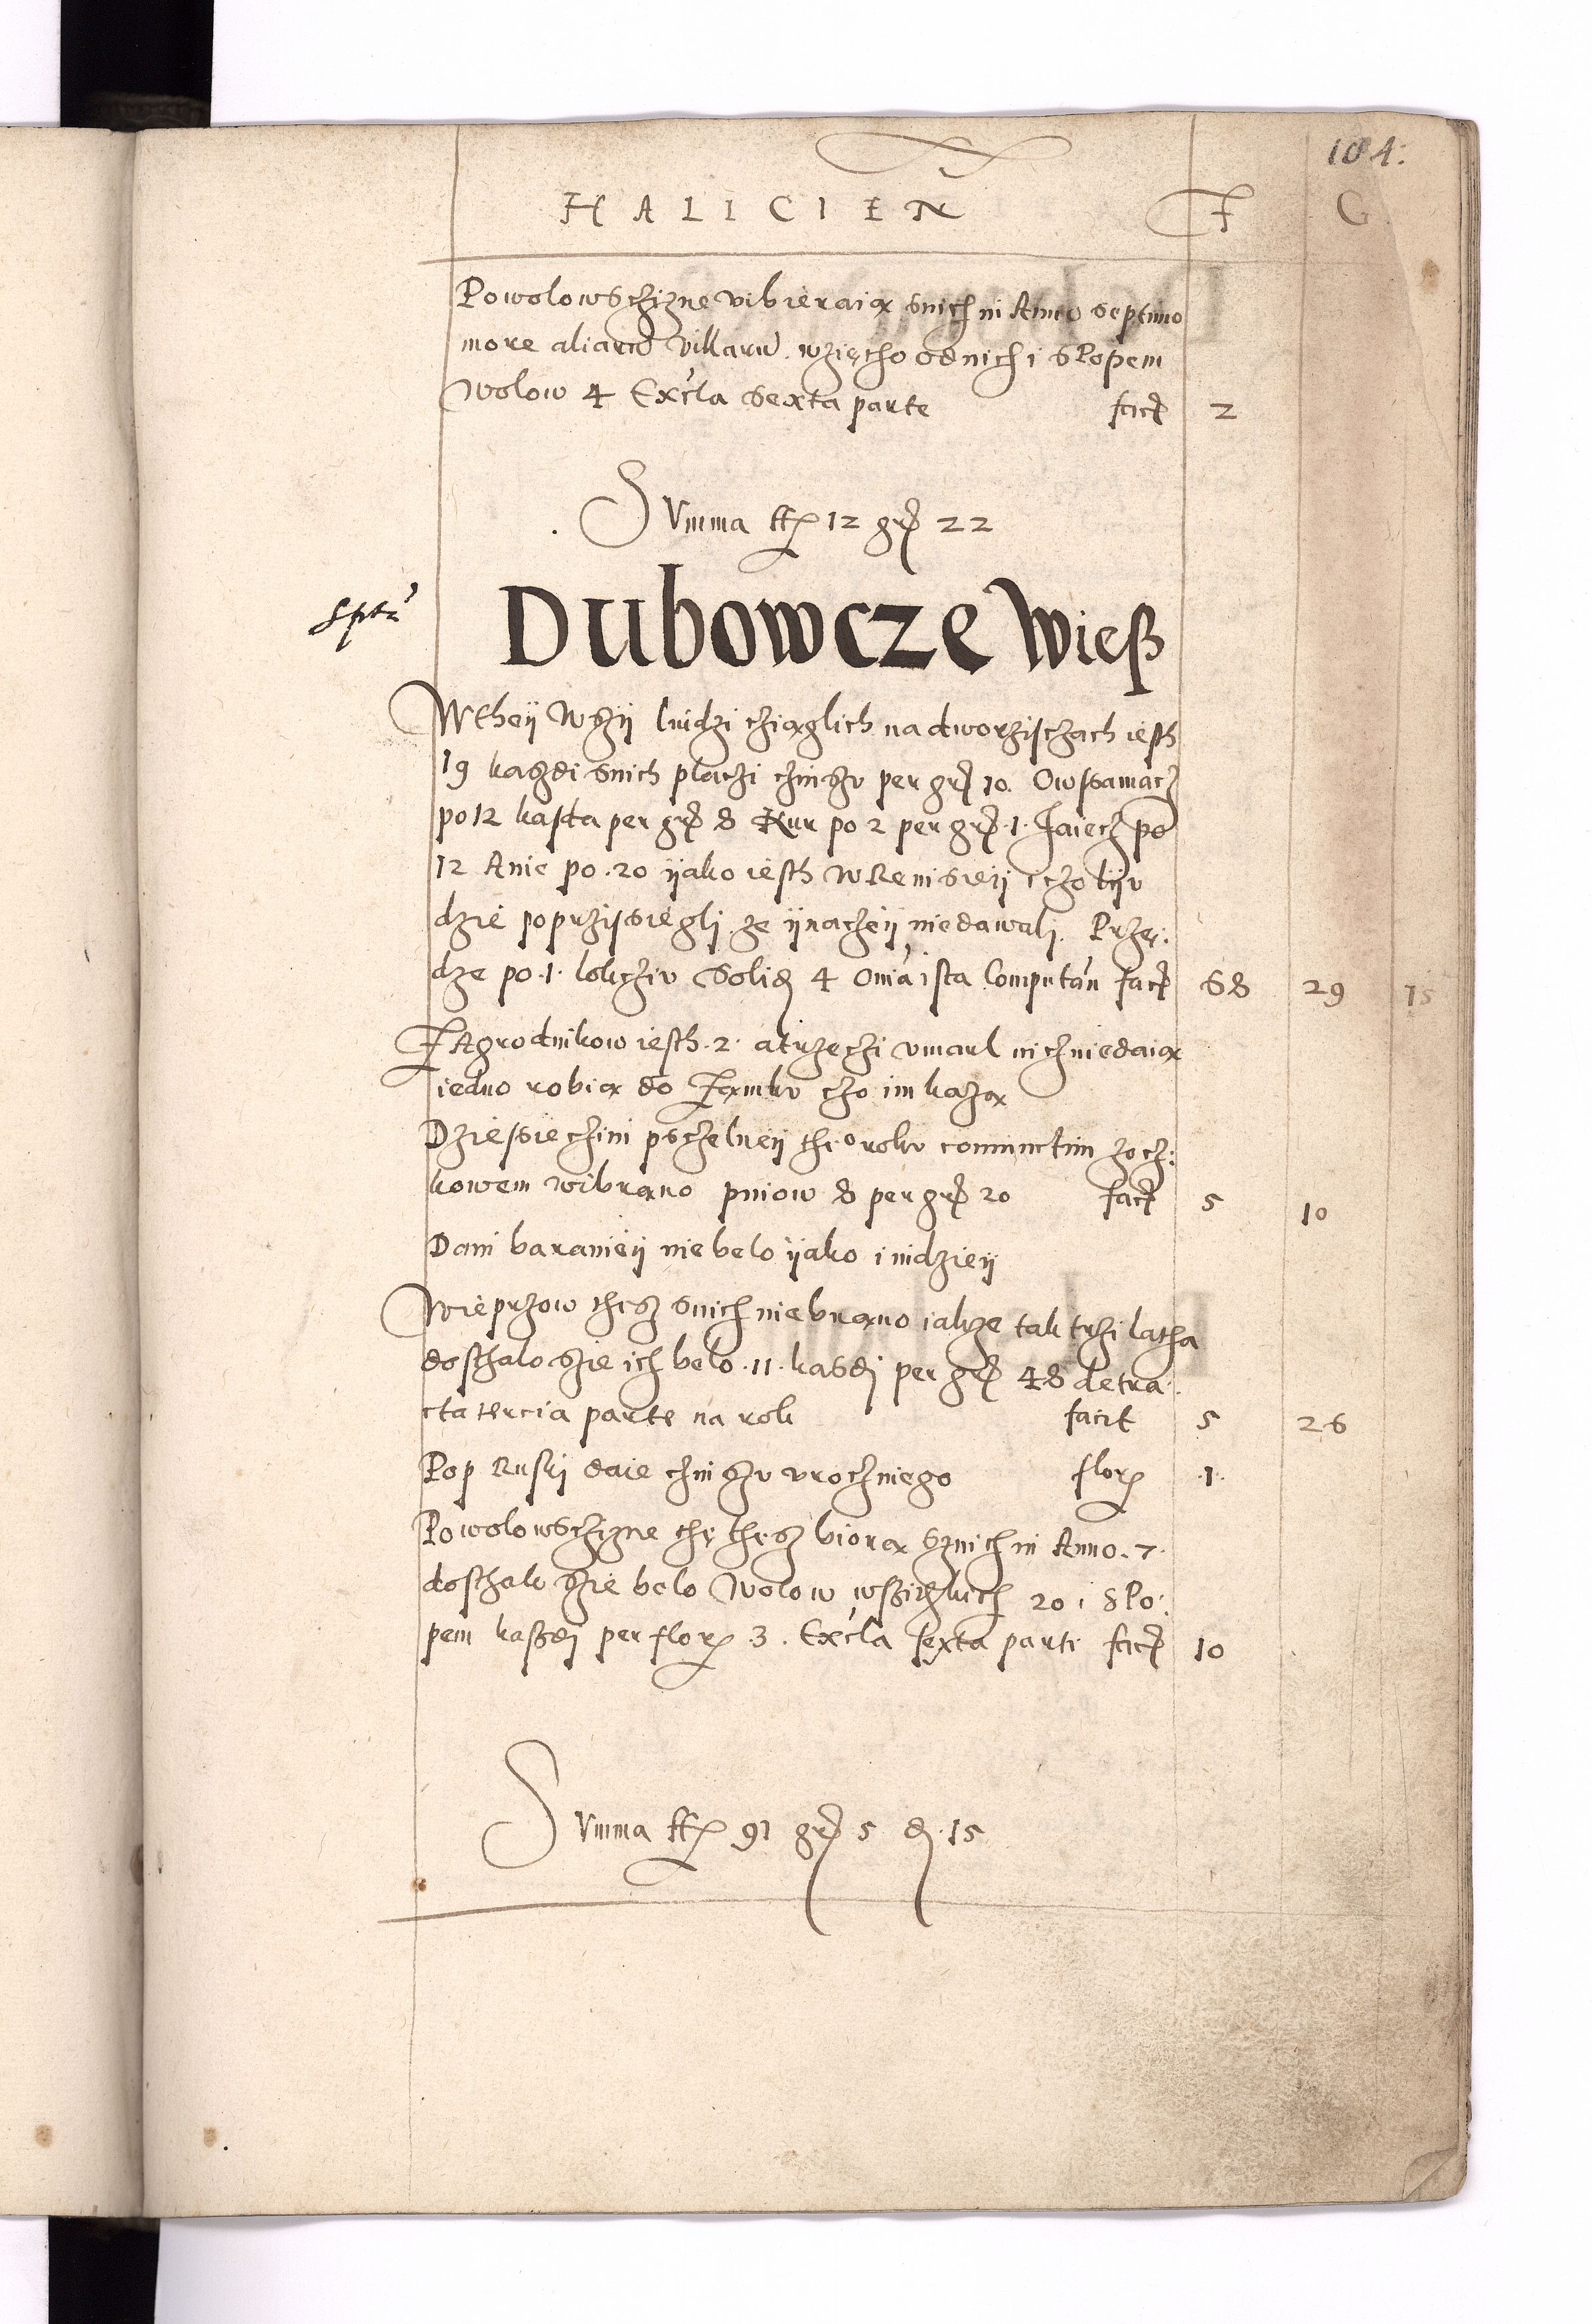 104.
HALICIEN F G
Powolowschizne vibieraią snich in Anno septimo
more aliarū villarū. wzięcho odnich i sPopem
Wolow 4 Excła Sexta parte fact 2
Summa ff 12 gr 22
Dubowcze Wieß
Wtheÿ Wszÿ ludzi cziąglich na dworziſchach ieſth
19 kazdi snich placzi czinszu per gr 10. Owssa macz
po 12 kaſda per gr 8 Kur po 2 per gr .1. Jaiecz po
12 A nie po .20 ÿako ieſth W Reuisieÿ czo lÿu
dzie poprziſsiegli ze ÿnaczeÿ niedawali. Przę:
dze po .1. lokcziu Solid 4 Om̄ia iſta Computan̄ fact 68 29 15
ZAgrodnikow ieſth .2. a trzeczi vmarl nicz niedaią
iedno robią do Zamku czo im kazą
Dzieſsieczini psczelneÿ the° roku coniunctim zocz:
kowem wibrano pniow 8 per gr 20 fact 5 10
Dani baranieÿ niebelo ÿako i indzieÿ
Wieprzow thesz snich niebrano iakze tak trzi latha
doschalo szie ich belo .11. kasdi per gr 48 detra:
cta tercia parte na rok facit 5 26
Pop Ruski daie czinszu vrocznieго flor .1.
Powolowschizne thę thesz biorą sznich in Anno .7.
doschalo szie belo Wolow wszitkich 20 i sPo:
pem kaszdi per flor .3. Excła sexta parti fact 10
Summa ff 91 gr 5 d .15